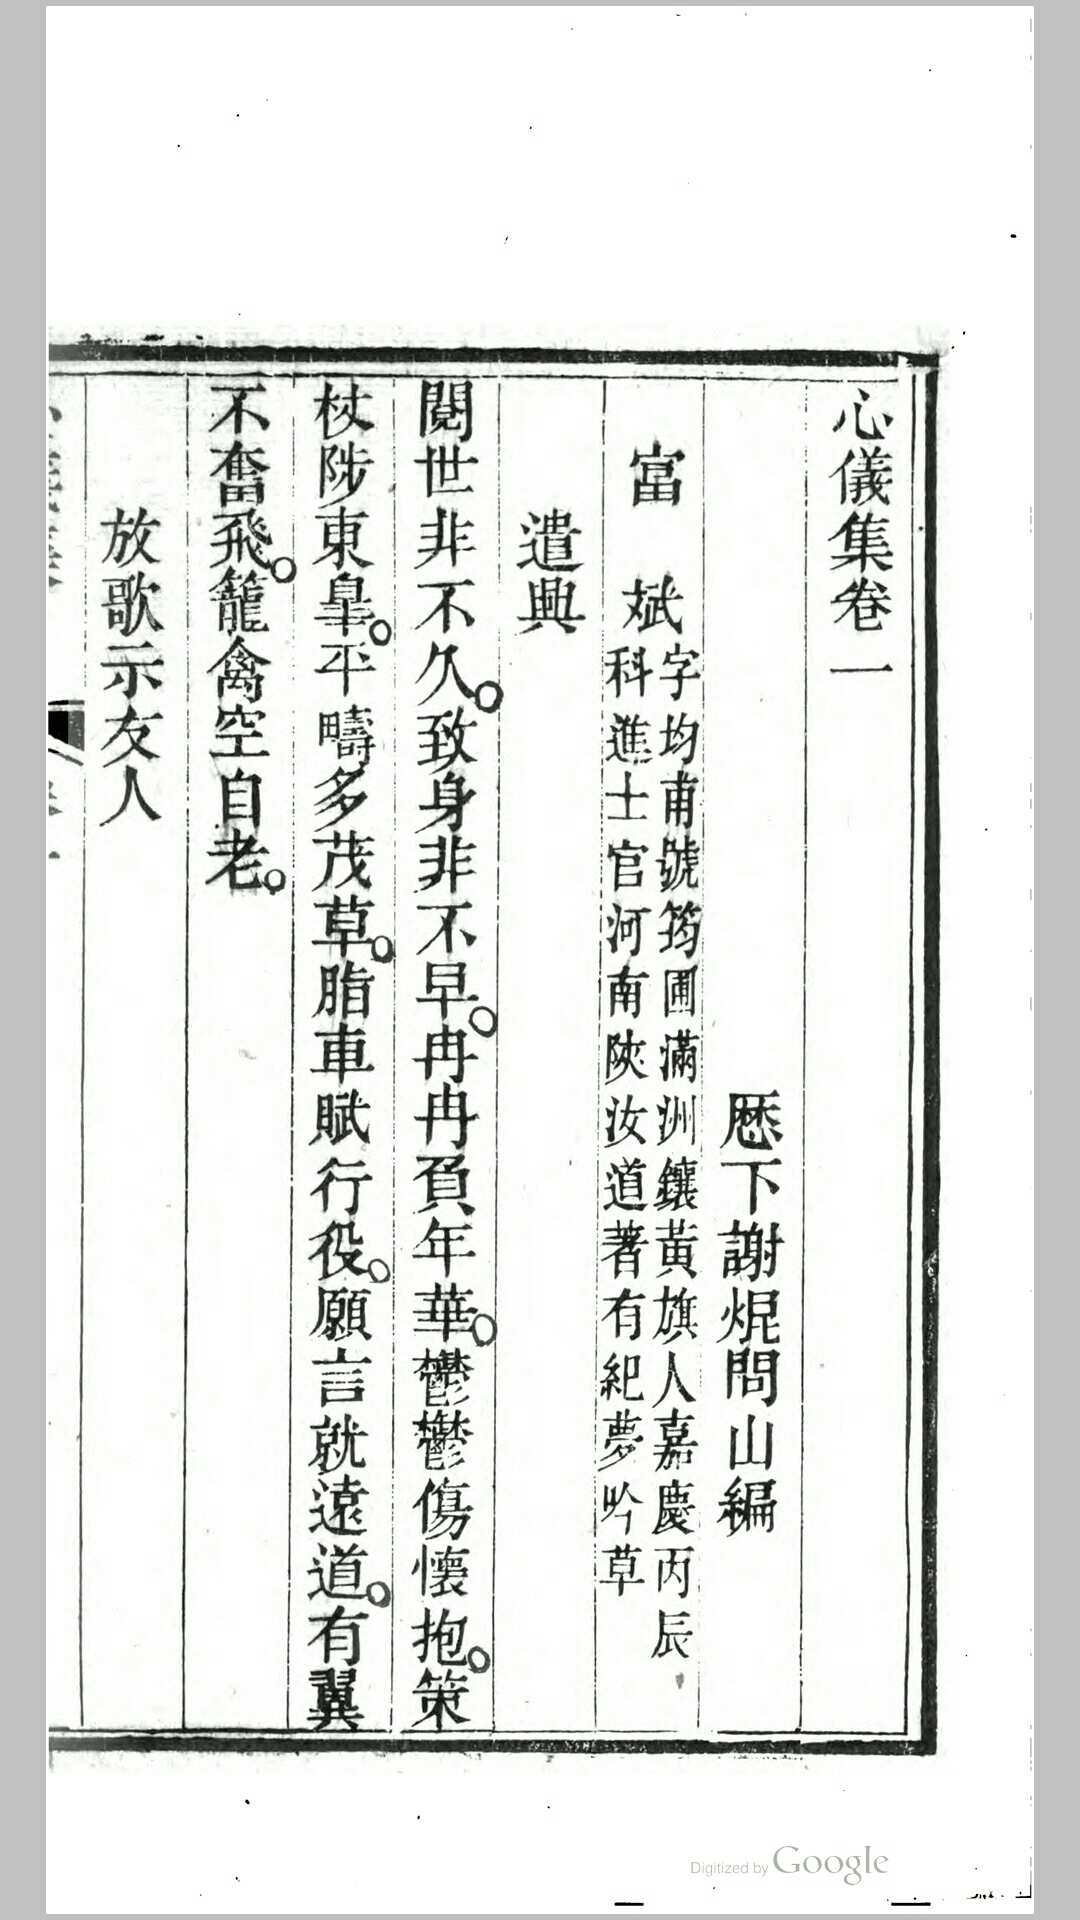 心儀集卷一
厯下謝焜問山編
富　斌
字均甫號筠圃滿洲鑲黃旗人嘉慶丙辰
科進士官河南陝汝道著有紀夢吟草
遣興
閱世非不久致身非不早冉冉負年華鬱鬱傷懷抱策
杖陟東臯平疇多茂草脂車賦行役願言就遠道有翼
不奮飛籠禽空自老
放歌示友人
Digitized by Google